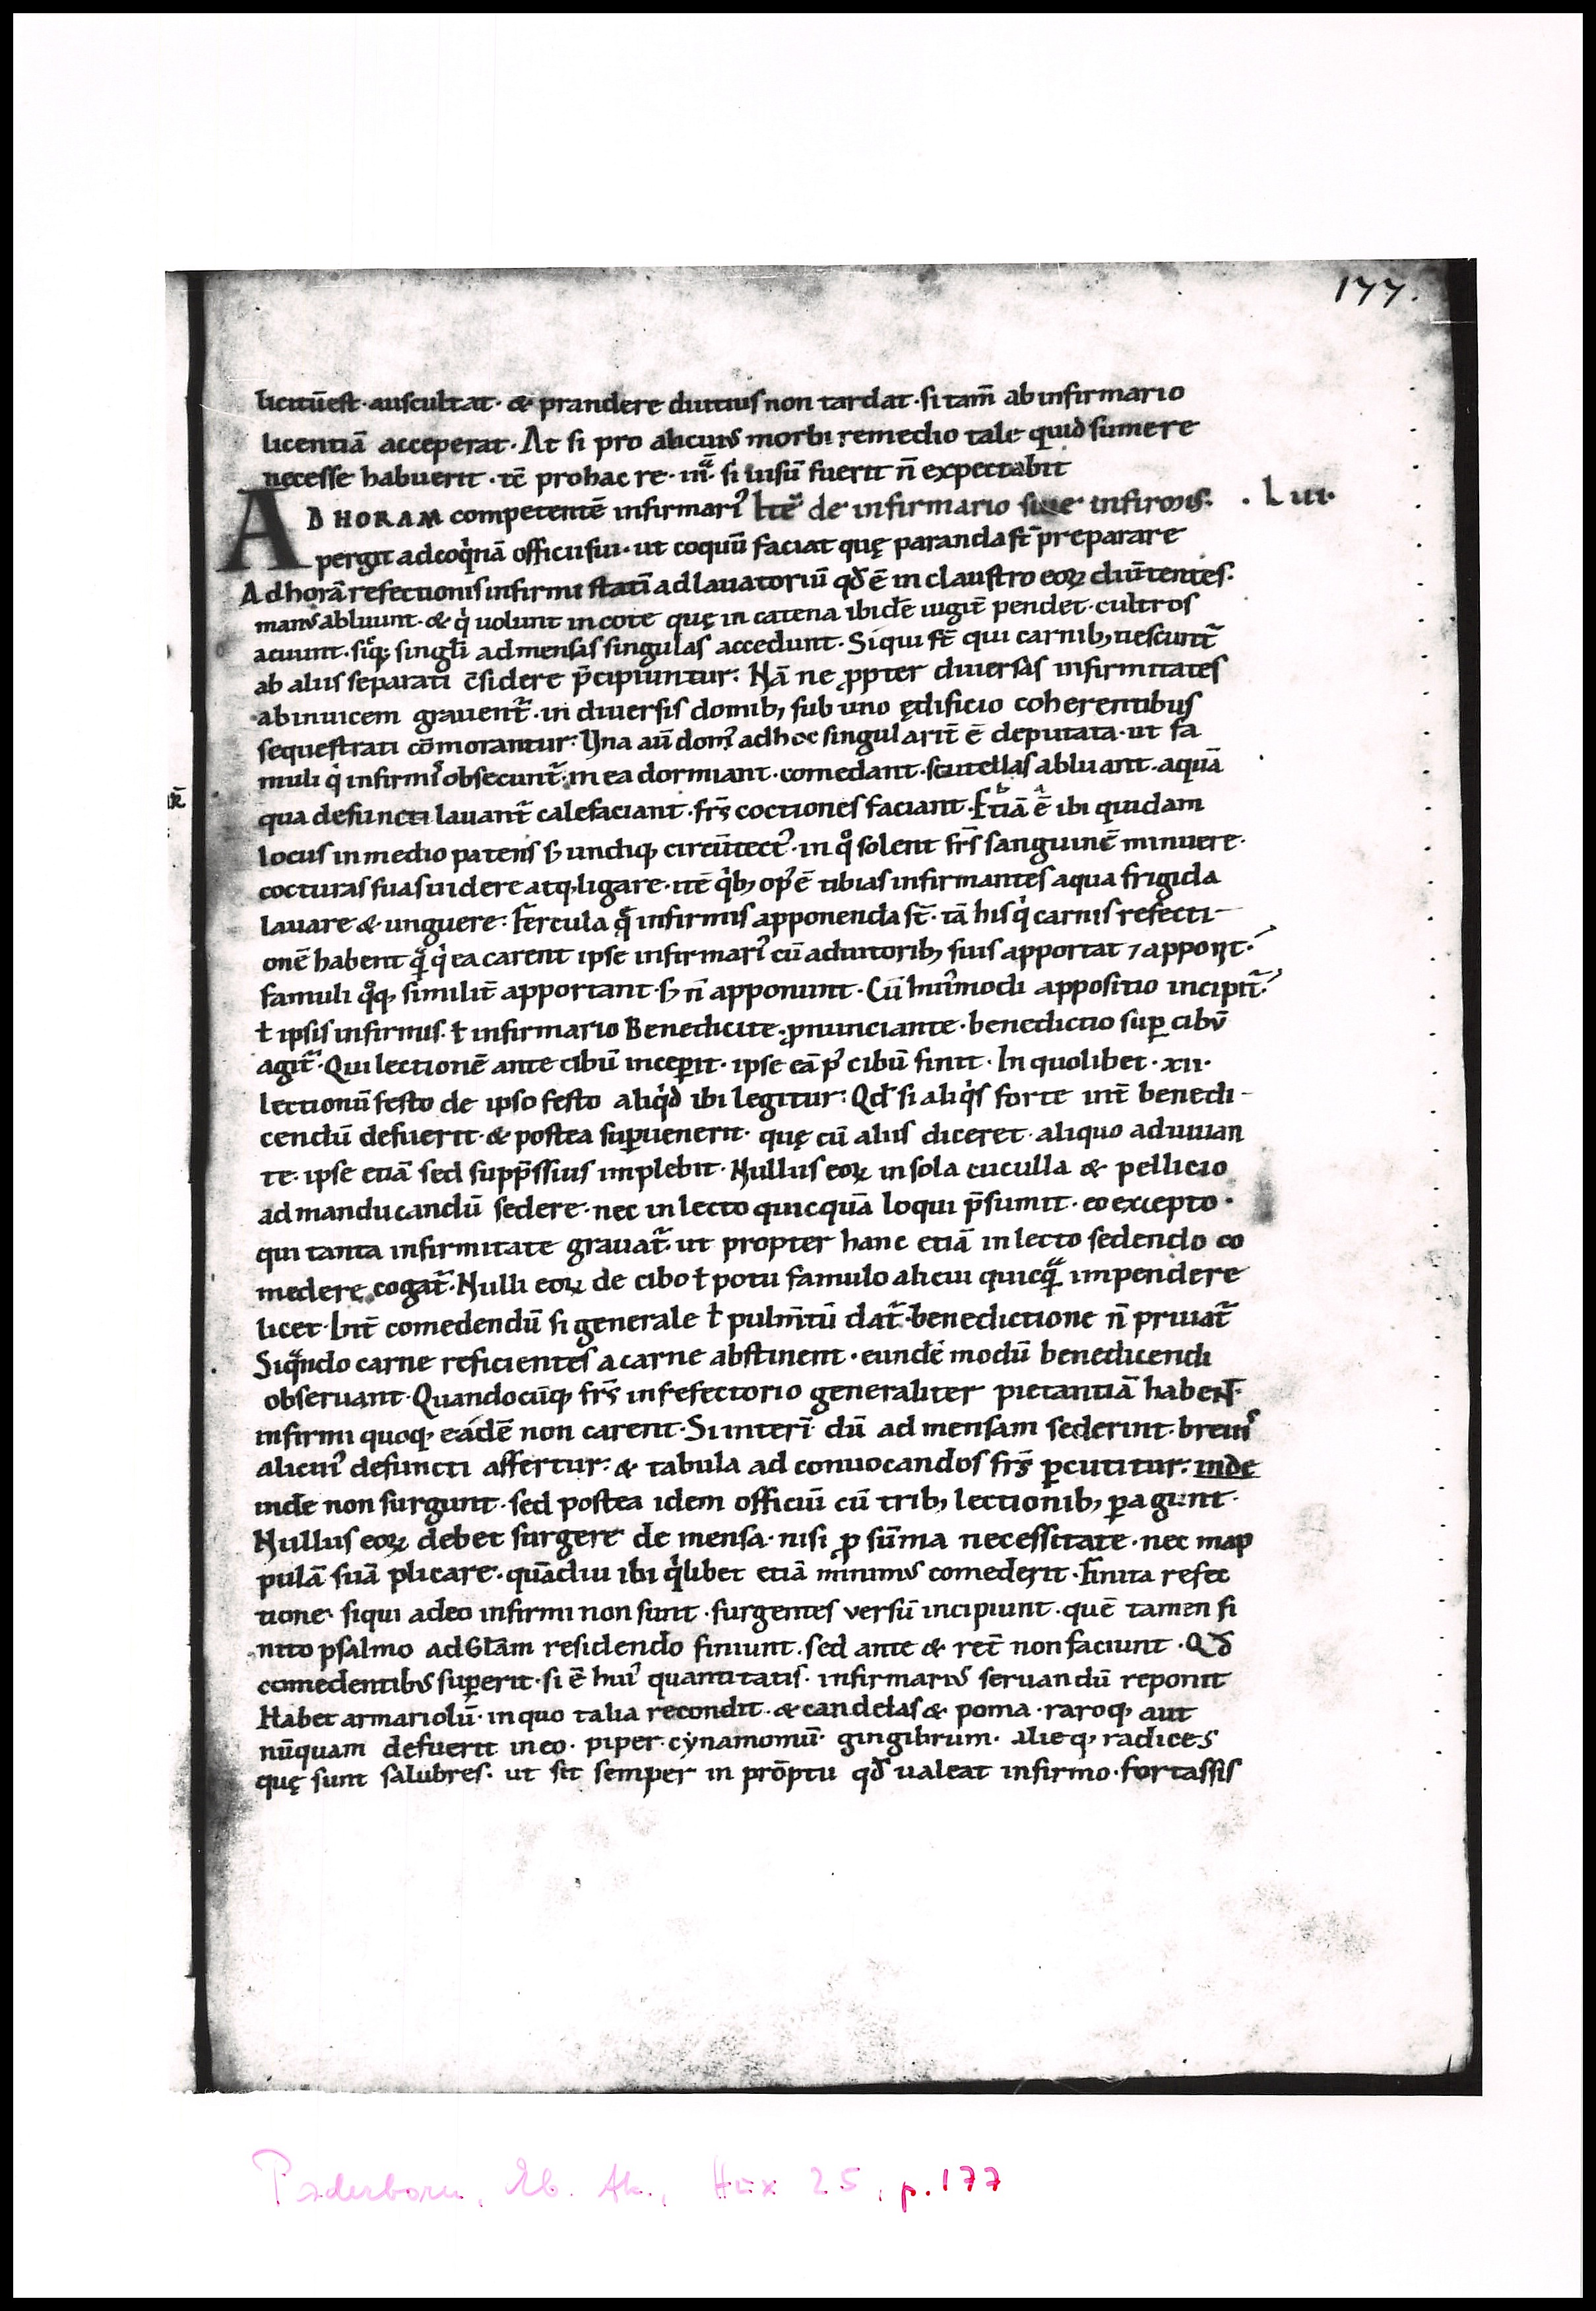 177.
licitū est · auscultat · & prandere diutius non tardat · si tam̄ ab infirmario
licentiā acceperat · At si pro alicuiꝰ morbi remedio tale quid sumere
necesse habuerit · tc̄ pro hac re · si uisū fuerit n̄ expectabit
AD HORAM competentē infirmariꝰ Itē de infirmario siue infirmis. · L uı·
pergit ad coq̇nā officii sui · ut coquū faciat quę paranda st̄ preparare
Ad horā refectionis infirmi statī ad lauatoriū qd̄ ē in claustro eoꝝ diūtentes.
manꝰ abluunt · & q̇ uolunt in cote quę in catena ibidē iugit̄ pendet · cultros
acuunt · sicꝗ; singl̄i ad mensas singulas accedunt · Siqui st̄ qui carnibꝫ uescunt᷑
ab aliis separati c̄sidere p̄cipiuntur: Nā ne ꝓpter diuersas infirmitates
ab inuicem grauent᷑ · in diuersis domibꝫ sub uno ędificio coherentibus
sequestrati cōmorantur: Una aū domꝰ ad hoc singularit̄ ē deputata · ut fa
muli q̇ infirmis obsecunt᷑ · in ea dormiant · comedant · scutellas abluant · aquā
qua defuncti lauant᷑ calefaciant · frs̄ coctiones faciant · Etiā ē ibi quidam
locus in medio patens sꝫ undiqꝫ circūtectꝰ · in qͦ solent frs̄ sanguinē minuere ·
cocturas suas uidere atqꝫ ligare · itē q̇bꝫ opꝰ ē tibias infirmantes aqua frigida
lauare & unguere: Fercula qͣ infirmis apponenda st̄ · tā his q̇ carnis refecti-
onē habent qͣ q̇ ea carent ipse infirmariꝰ cū adiutoribꝫ suis apportat ⁊ apponit ·
famuli qͦqꝫ similit̄ apportant · sꝫ n̄ apponunt · Cū huiꝰmodi appositio incipit᷑ ·
ł ipsis infirmis · ł infirmario Benedicite · ꝓnunciante · benedictio suꝑ cibū
agit᷑ · Qui lectionē ante cibū inceꝑit · ipse eā pꝰ cibū finit · In quolibet · xii ·
lectionū festo de ipso festo aliq̇d ibi legitur: Qd̄ si aliq̇s forte int̄ benedi-
cendū defuerit · & postea suꝑuenerit · quę cū aliis diceret · aliquo adiuuan
te · ipse etiā sed supp̄ssius implebit · Nullus eoꝝ in sola cuculla & pellicio
ad manducandū sedere · nec in lecto quicquā loqui p̄sumit · eo excepto ·
qui tanta infirmitate grauat᷑ · ut propter hanc etiā in lecto sedendo co
medere cogat᷑ · Nulli eoꝝ de cibo ł potu famulo alicui quicqͣ impendere
licet · Int̄ comedendū si generale ł pulm̄tū dat᷑ · benedictione n̄ priuat᷑
Siqͣndo carne reficientes a carne abstinent · eundē modū benedicendi
obseruant · Quandocūqꝫ frs̄ in refectorio generaliter pietantiā habent ·
infirmi quoqꝫ eadē non carent · Si interī dū ad mensam sederint · breuis
alicuiꝰ defuncti affertur: & tabula ad conuocandos frs̄ ꝑcutitur: inde
inde non surgunt · sed postea idem officiū cū tribꝫ lectionibꝫ ꝑagunt ·
Nullus eoꝝ debet surgere de mensa · nisi ꝓ sūma necessitate · nec map
pulā suā plicare · quādiu ibi q̇libet etiā minimꝰ comederit · Finita refec
tione · siqui adeo infirmi non sunt · surgentes versū incipiunt · quē tamen fi
nito psalmo ad Glām residendo finiunt · sed ante & ret̄ non faciunt · Qd̄
comedentibꝰ suꝑerit · si ē huiꝰ quantitatis · infirmariꝰ seruandū reponit
Habet armariolū · in quo talia recondit · & candelas & poma · raroqꝫ aut
nūquam defuerit in eo · piper · cynamomū · gingibrum · alieqꝫ radices
quę sunt salubres · ut sit semper in prōptu qd̄ ualeat infirmo · fortassis
Paderborn, Eb. Ak., Hux 25, p. 177